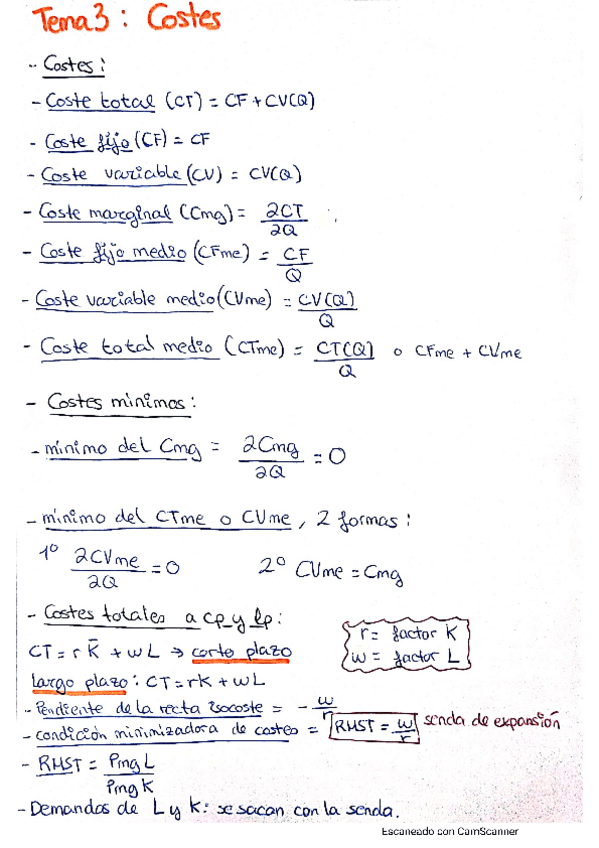 Tema 3: Costes
- Costes:
- Coste total (CT) = CF + CV(Q)
- Coste fijo (CF) = CF
- Coste variable (CV) = CV(Q)
- Coste marginal (Cmg) = ∂CT/∂Q
- Coste fijo medio (CFme) = CF/Q
- Coste variable medio (CVme) = CV(Q)/Q
- Coste total medio (CTme) = CT(Q)/Q o CFme + CVme
- Costes minimos:
- minimo del Cmg = ∂Cmg/∂Q = 0
- minimo del CTme o CVme, 2 formas:
1º ∂CVme/∂Q = 0 2º CVme = Cmg
- Costes totales a cp y lp:
CT = r K̄ + wL → corto plazo
largo plazo: CT = rK + wL
r = factor K
w = factor L
- Pendiente de la recta isocoste = - w/r
- condición minimizadora de costes = RMST = w/r senda de expansión
- RMST = PmgL/PmgK
- Demandas de L y K: se sacan con la senda.
Escaneado con CamScanner